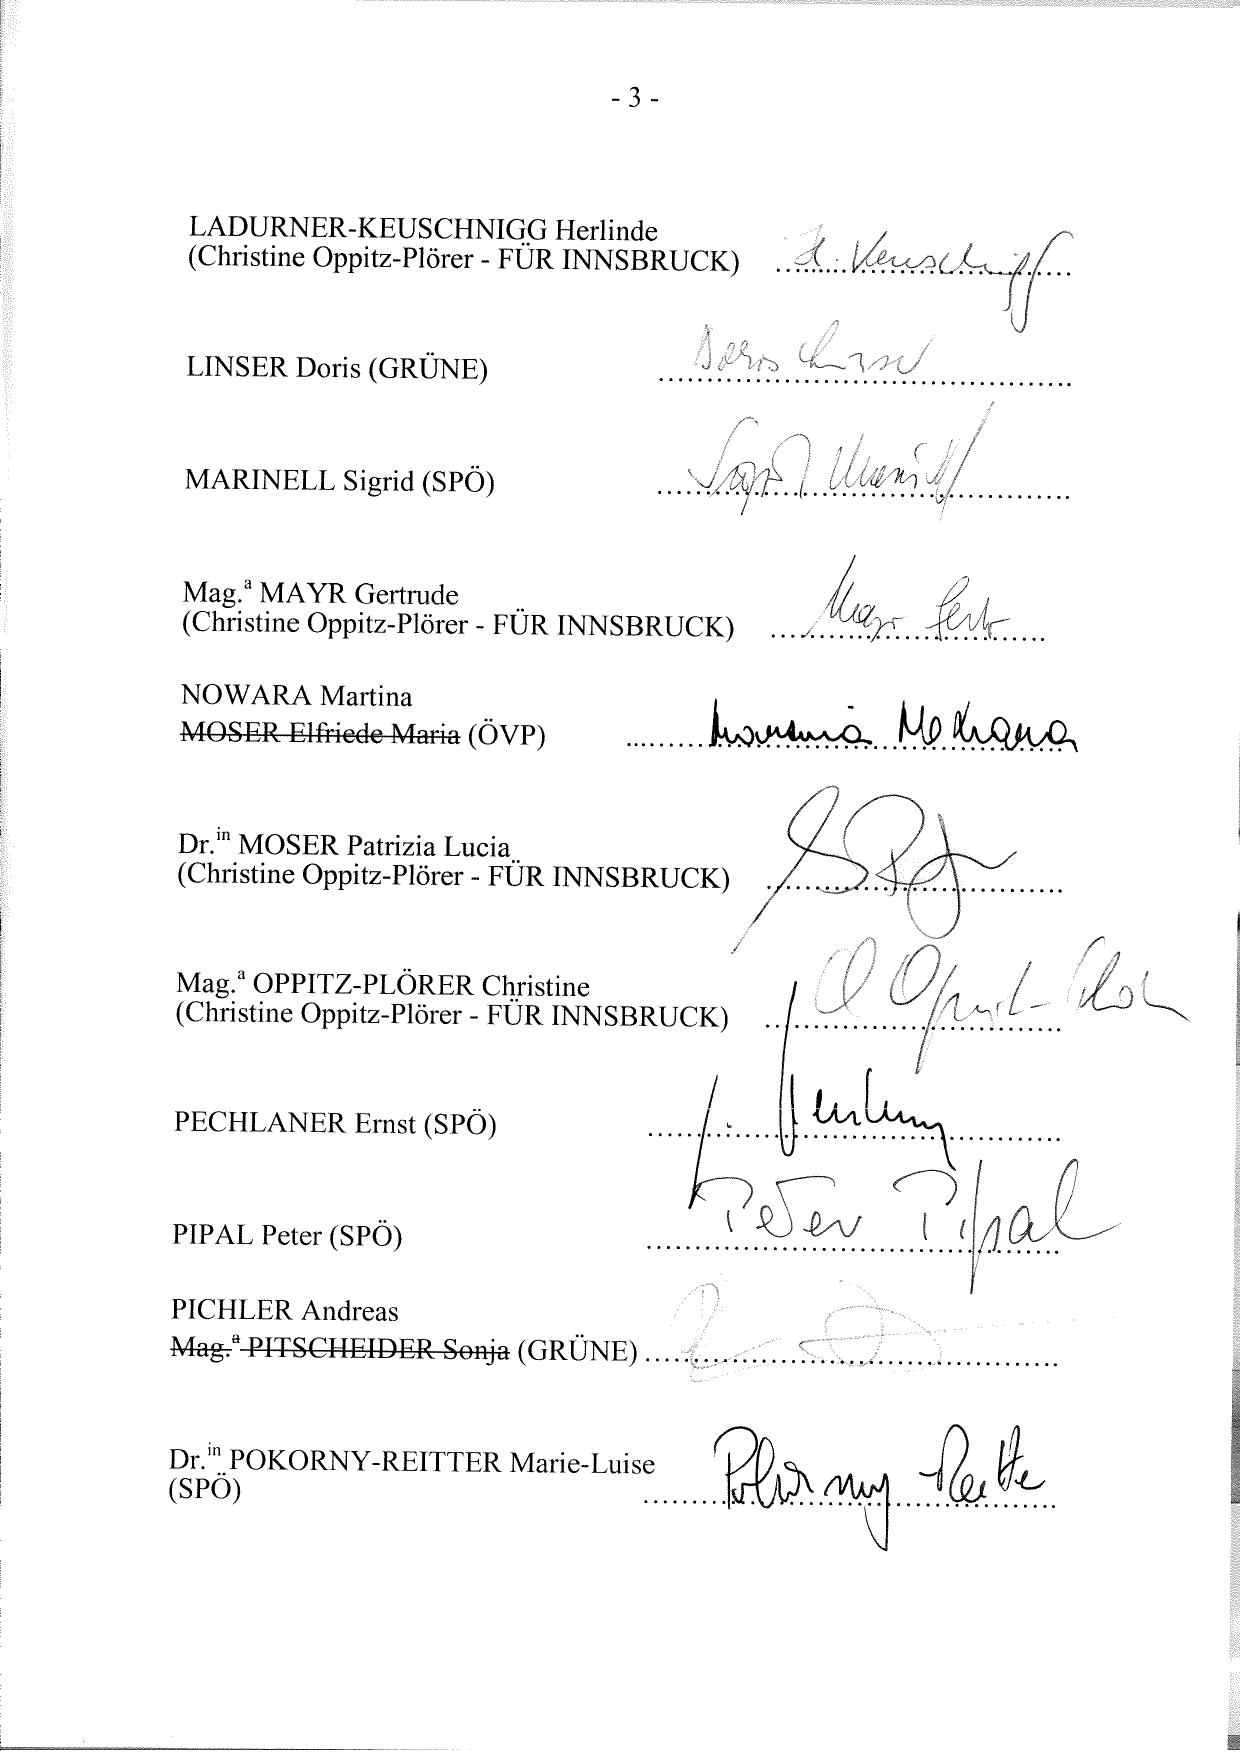 - 3 -
LADURNER-KEUSCHNIGG Herlinde
(Christine Oppitz-Plörer - FÜR INNSBRUCK) H. Keuschnigg
LINSER Doris (GRÜNE) Doris Linser
MARINELL Sigrid (SPÖ)
Mag.ª MAYR Gertrude
(Christine Oppitz-Plörer - FÜR INNSBRUCK) Mayr
NOWARA Martina
MOSER Elfriede Maria (ÖVP)
Dr.in MOSER Patrizia Lucia
(Christine Oppitz-Plörer - FÜR INNSBRUCK)
Mag.ª OPPITZ-PLÖRER Christine
(Christine Oppitz-Plörer - FÜR INNSBRUCK)
PECHLANER Ernst (SPÖ)
PIPAL Peter (SPÖ) Peter Pipal
PICHLER Andreas
Mag.ª PITSCHEIDER Sonja (GRÜNE)
Dr.in POKORNY-REITTER Marie-Luise Pokorny Reitter
(SPÖ)